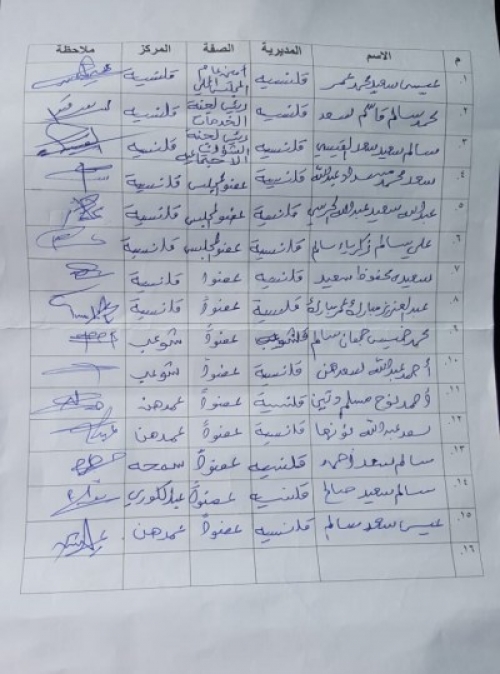 م الاسم المديرية الصفة المركز ملاحظة
١. عيسى سعيد محمد عمر قلنسيه أمين عام المجلس المحلي قلنسية
٢. محمد سالم قاسم سعد قلنسيه رئيس لجنة الخدمات قلنسية
٣. سالم سعيد سعد القيسي قلنسيه رئيس لجنة الشؤون الاجتماعيه قلنسية
٤. سعد محمد عبدالله قلنسية عضو مجلس قلنسية
٥. عبدالله سعيد عبدالله قلنسية عضو مجلس قلنسية
٦. علي سالم زكريا سالم قلنسية عضو مجلس قلنسية
٧. سعيد محفوظ سعيد قلنسيه عضواً قلنسية
٨. عبدالعزيز مبارك مبارك قلنسية عضواً قلنسية
٩. محمد خميس جمعان سالم عضواً شوعب
١٠. أحمد عبدالله سعدهن قلنسية عضواً شوعب
١١. أحمد نوح مسلم قلنسية عضواً عمدهن
١٢. سعد عبدالله قلنسية عضواً عمدهن
١٣. سالم سعد أحمد قلنسيه عضواً سمحه
١٤. سالم سعيد صالح قلنسيه عضواً عبدالكوري
١٥. عيسى سعد سالم قلنسيه عضواً عمدهن
١٦.